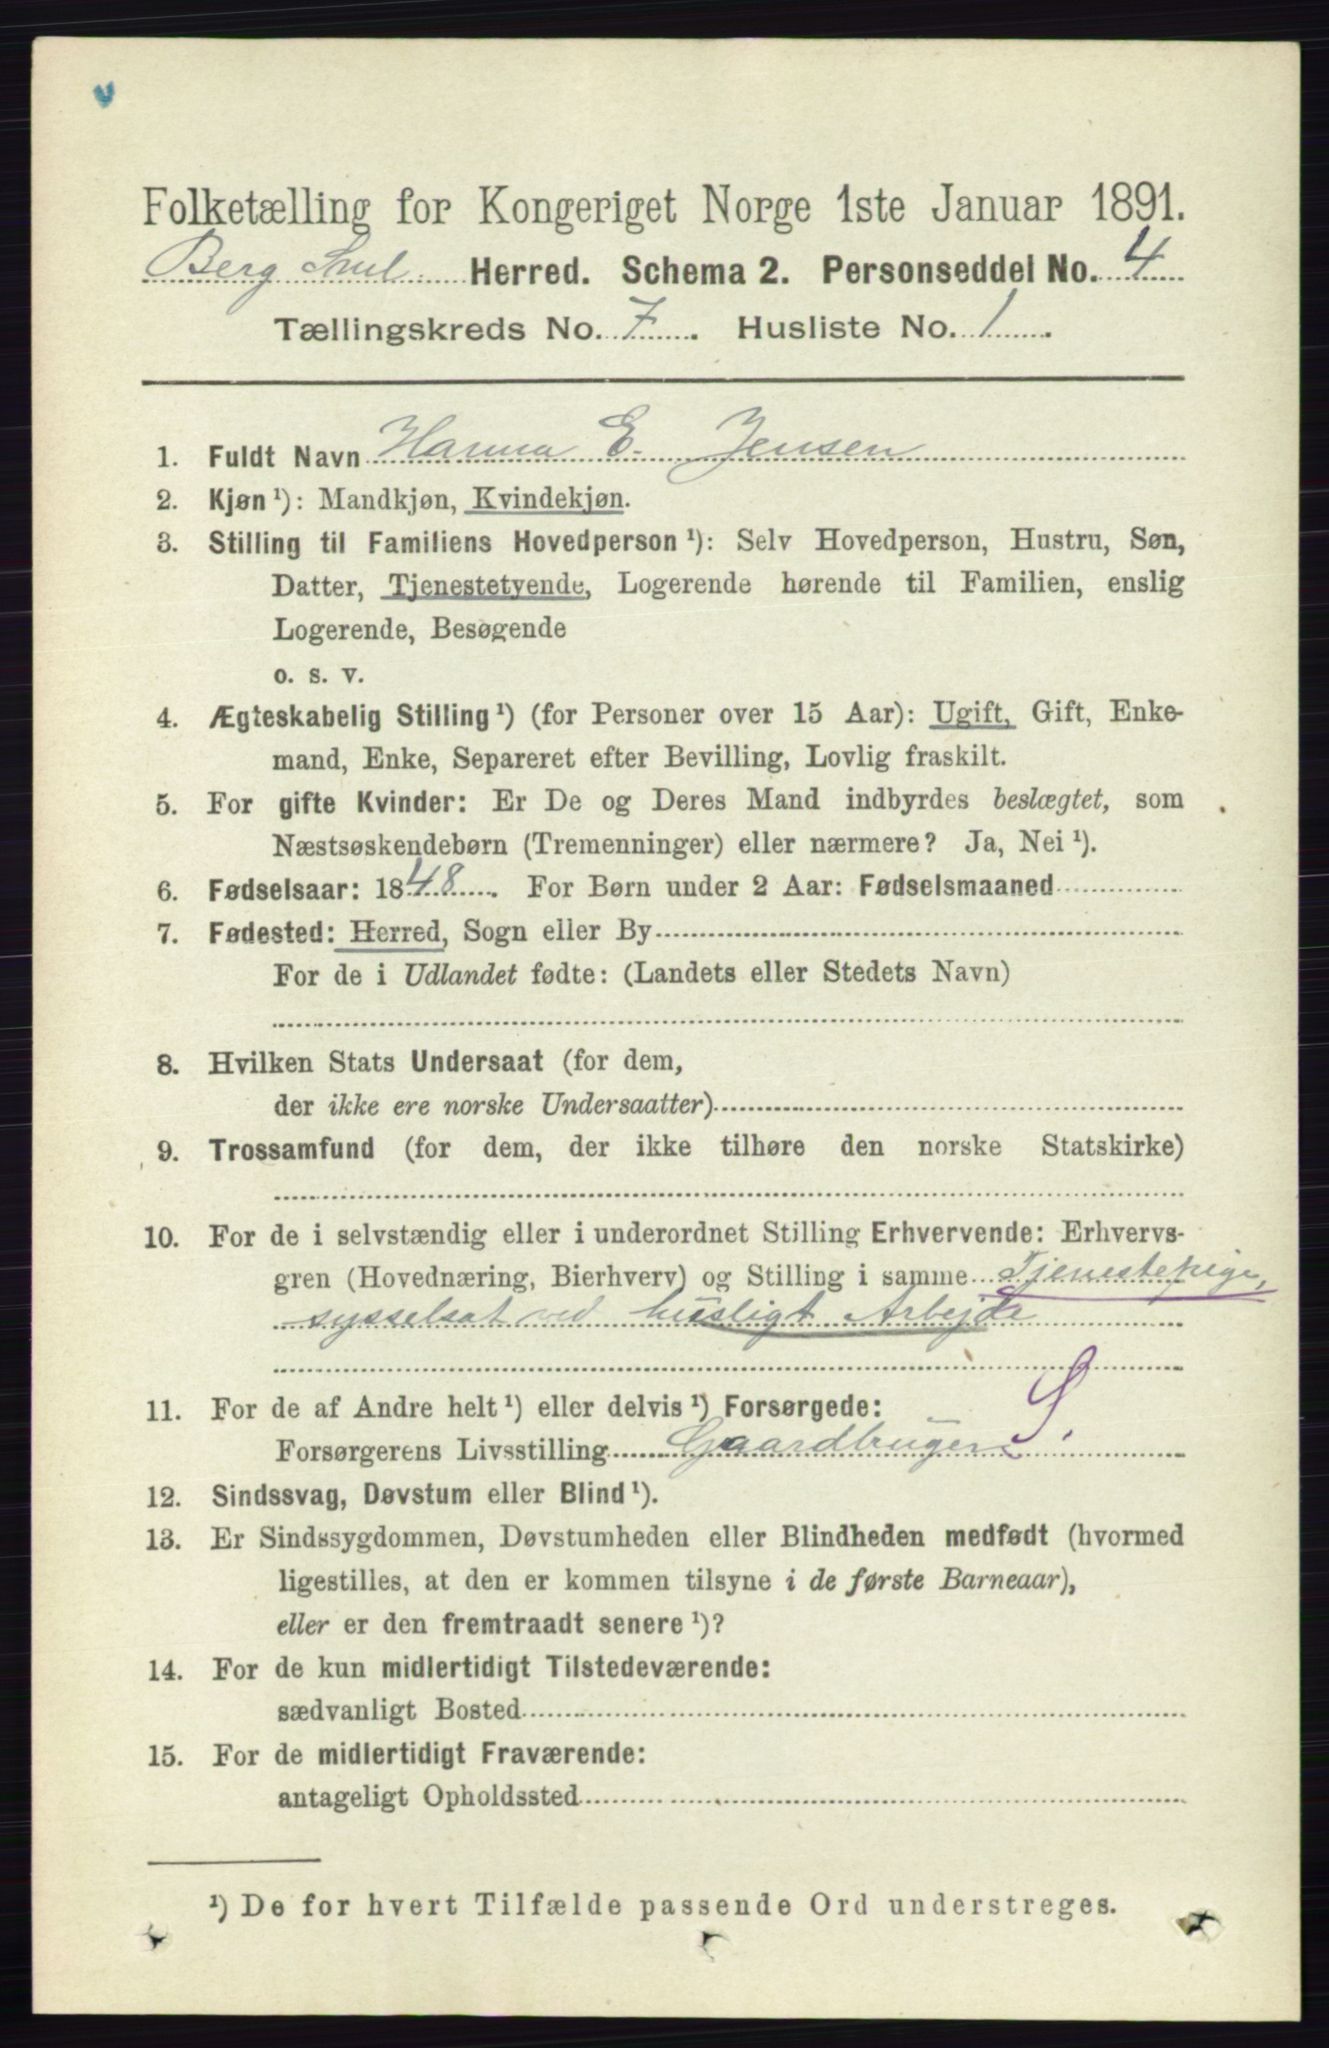 Folketælling for Kongeriget Norge 1ste Januar 1891.
Berg Sml. Herred. Schema 2. Personseddel No. 4
Tællingskreds No. 7. Husliste No. 1.
1. Fuldt Navn Hanna E. Jensen
2. Kjøn ¹): Mandkjøn, Kvindekjøn.
3. Stilling til Familiens Hovedperson ¹): Selv Hovedperson, Hustru, Søn,
Datter, Tjenestetyende, Logerende hørende til Familien, enslig
Logerende, Besøgende
o. s. v.
4. Ægteskabelig Stilling ¹) (for Personer over 15 Aar): Ugift, Gift, Enke-
mand, Enke, Separeret efter Bevilling, Lovlig fraskilt.
5. For gifte Kvinder: Er De og Deres Mand indbyrdes beslægtet, som
Næstsøskendebørn (Tremenninger) eller nærmere? Ja, Nei ¹).
6. Fødselsaar: 1848. For Børn under 2 Aar: Fødselsmaaned
7. Fødested: Herred, Sogn eller By
For de i Udlandet fødte: (Landets eller Stedets Navn)
8. Hvilken Stats Undersaat (for dem,
der ikke ere norske Undersaatter)
9. Trossamfund (for dem, der ikke tilhøre den norske Statskirke)
10. For de i selvstændig eller i underordnet Stilling Erhvervende: Erhvervs-
gren (Hovednæring, Bierhverv) og Stilling i samme Tjenestepige,
sysselsat ved husligt Arbejde
11. For de af Andre helt ¹) eller delvis ¹) Forsørgede:
Forsørgerens Livsstilling Gaardbruger S.
12. Sindssvag, Døvstum eller Blind ¹).
13. Er Sindssygdommen, Døvstumheden eller Blindheden medfødt (hvormed
ligestilles, at den er kommen tilsyne i de første Barneaar),
eller er den fremtraadt senere ¹)?
14. For de kun midlertidigt Tilstedeværende:
sædvanligt Bosted
15. For de midlertidigt Fraværende:
antageligt Opholdssted
¹) De for hvert Tilfælde passende Ord understreges.